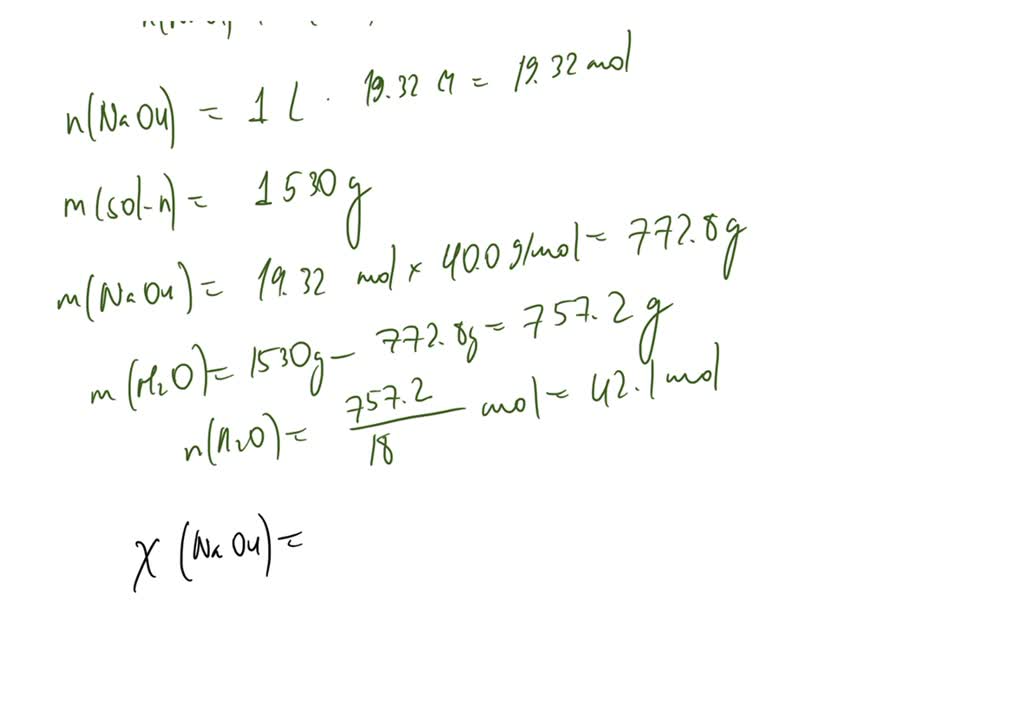 n(NaOH) = 1 L · 19.32 M = 19.32 mol
m(sol-n) = 1530 g
m(NaOH) = 19.32 mol × 40.0 g/mol = 772.8 g
m(H2O) = 1530g - 772.8g = 757.2 g
n(H2O) = 757.2/18 mol = 42.1 mol
X (NaOH) =